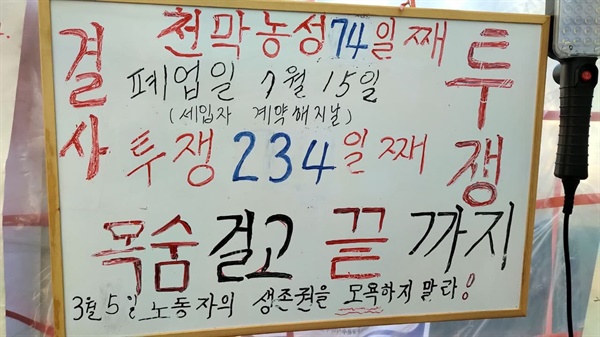 결사
투쟁
천막농성 74일째
폐업일 7월 15일
(세입자 계약해지날)
투쟁 234일째
목숨걸고 끝까지
3월 5일 노동자의 생존권을 모욕하지 말라!